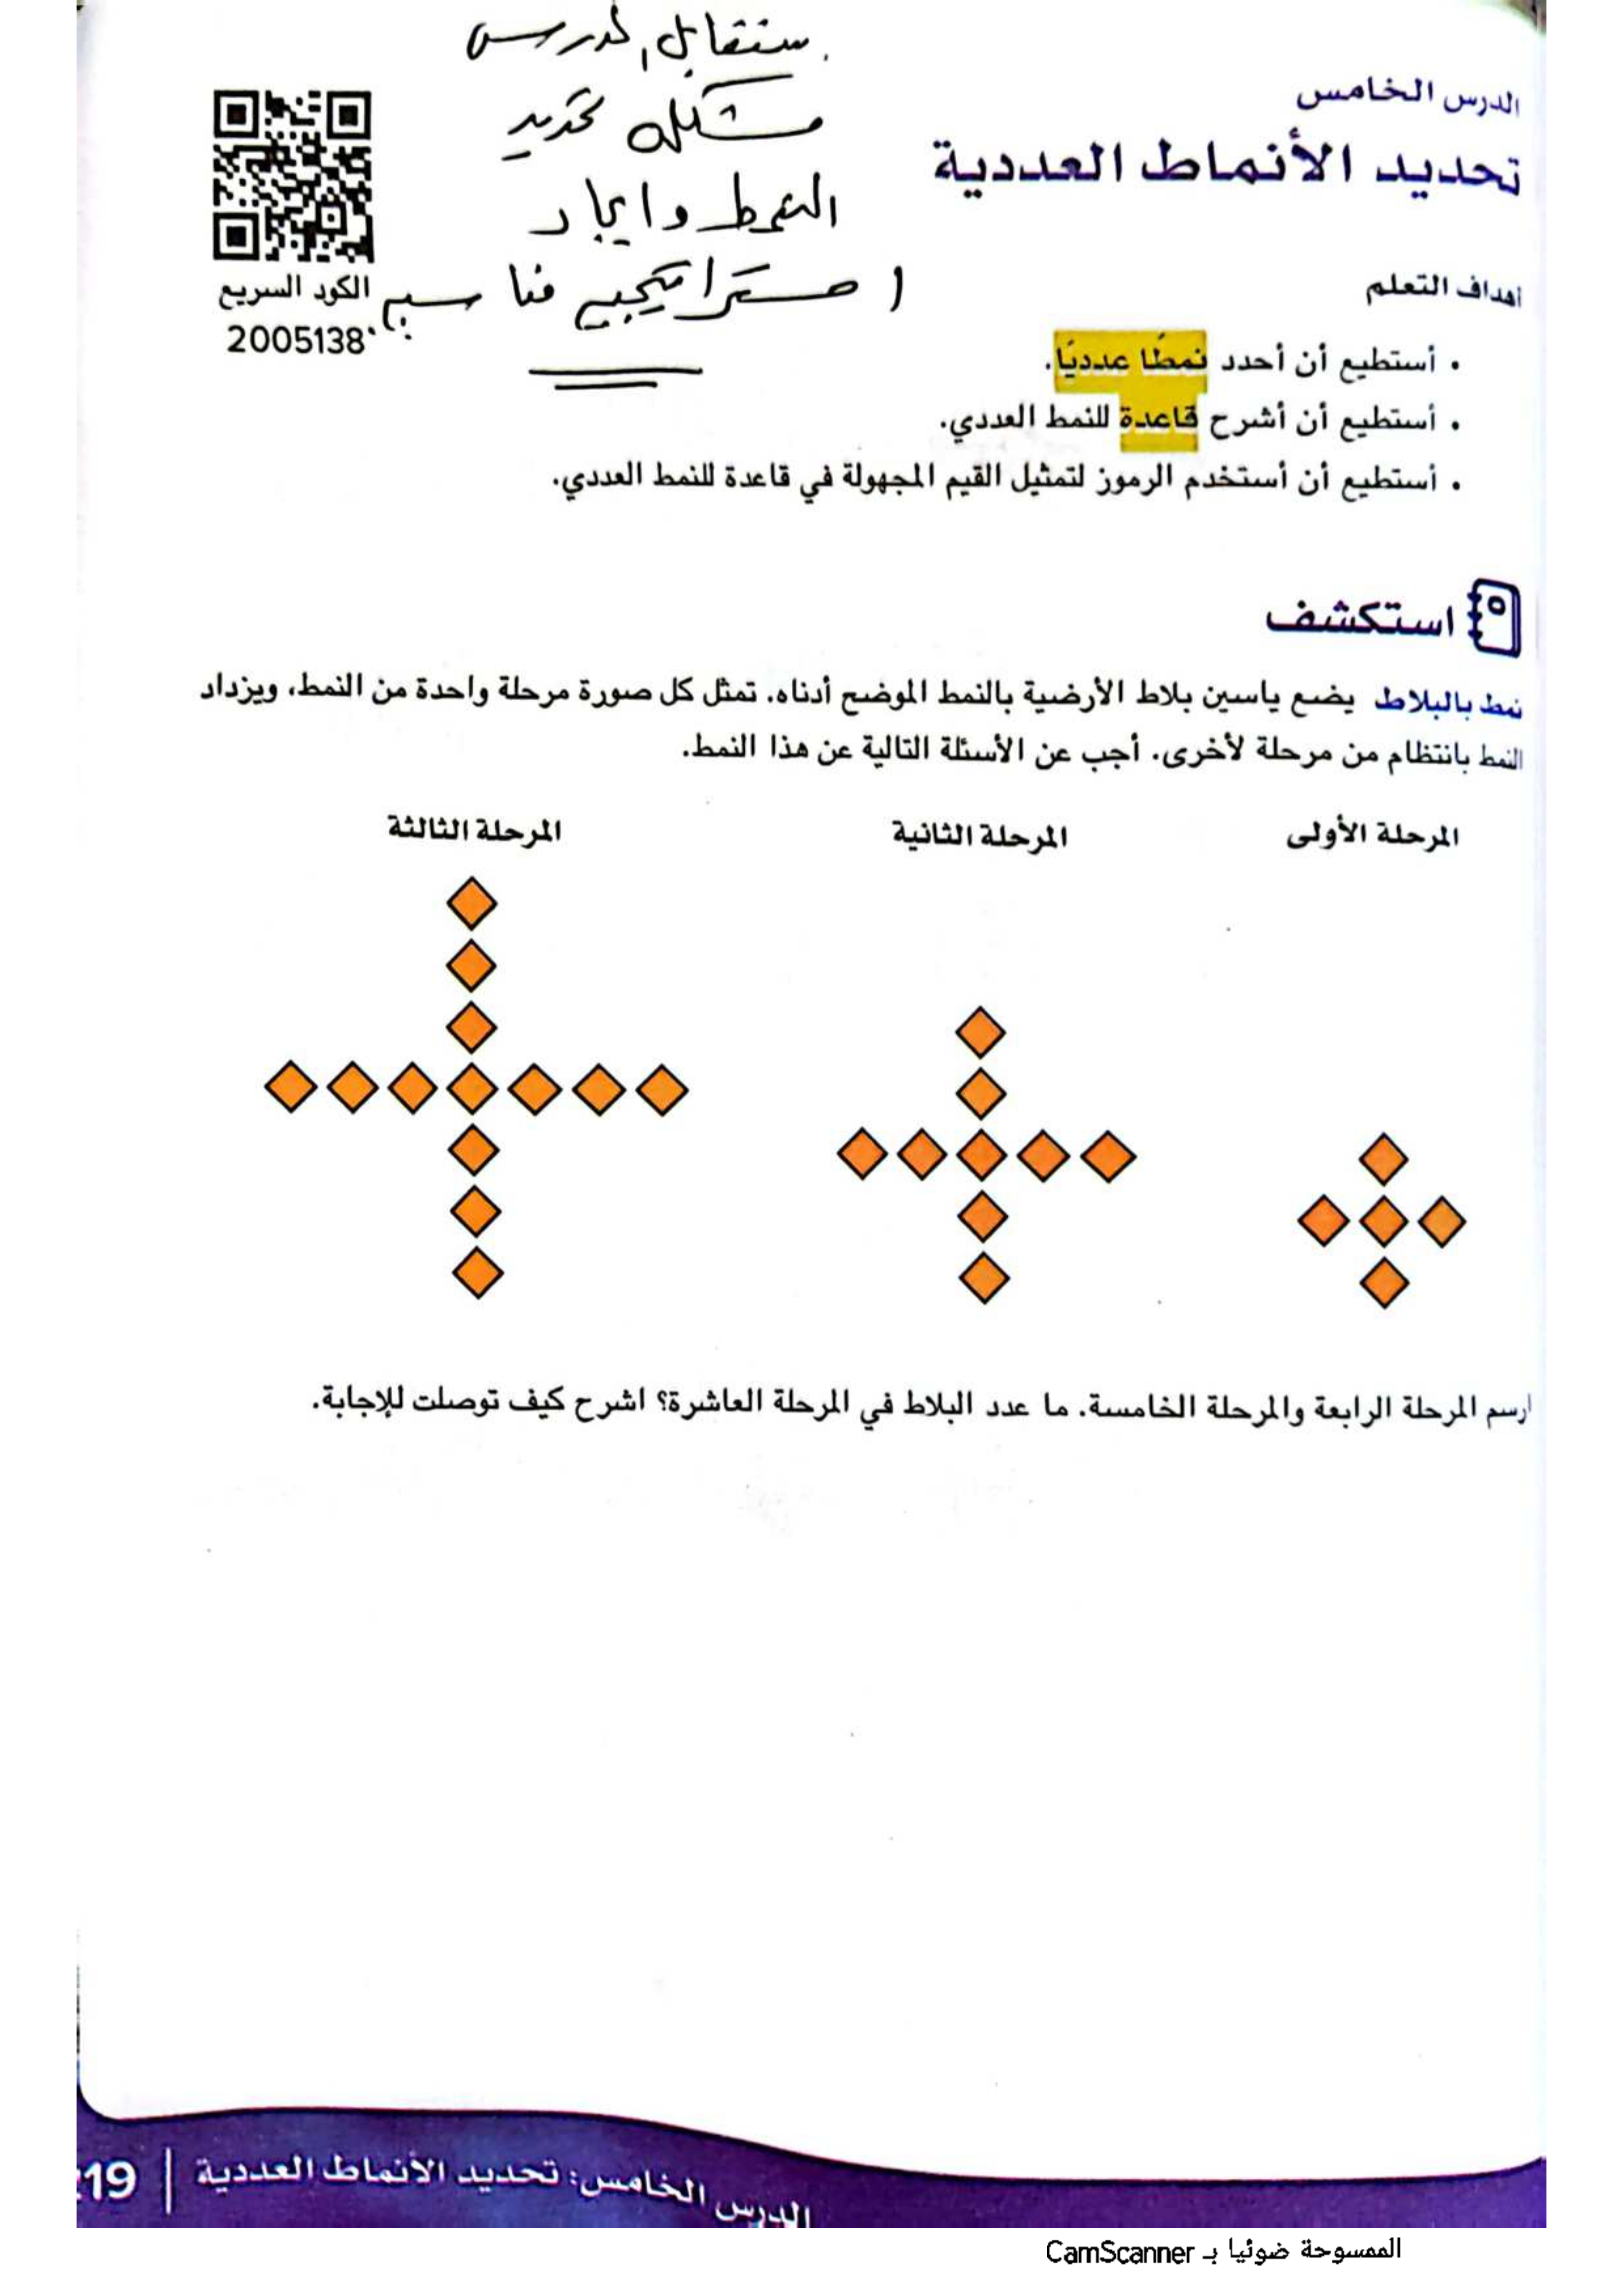 سنقابل الدرس
مشكلة تحديد
النمط وايجاد
استراتيجية مناسبة
الدرس الخامس
تحديد الأنماط العددية
الكود السريع
2005138
أهداف التعلم
• أستطيع أن أحدد نمطًا عدديًا.
• أستطيع أن أشرح قاعدة للنمط العددي.
• أستطيع أن أستخدم الرموز لتمثيل القيم المجهولة في قاعدة للنمط العددي.
استكشف
نمط بالبلاط يضع ياسين بلاط الأرضية بالنمط الموضح أدناه. تمثل كل صورة مرحلة واحدة من النمط، ويزداد
النمط بانتظام من مرحلة لأخرى. أجب عن الأسئلة التالية عن هذا النمط.
المرحلة الأولى
المرحلة الثانية
المرحلة الثالثة
ارسم المرحلة الرابعة والمرحلة الخامسة. ما عدد البلاط في المرحلة العاشرة؟ اشرح كيف توصلت للإجابة.
الدرس الخامس: تحديد الأنماط العددية | 19
الممسوحة ضوئيا بـ CamScanner